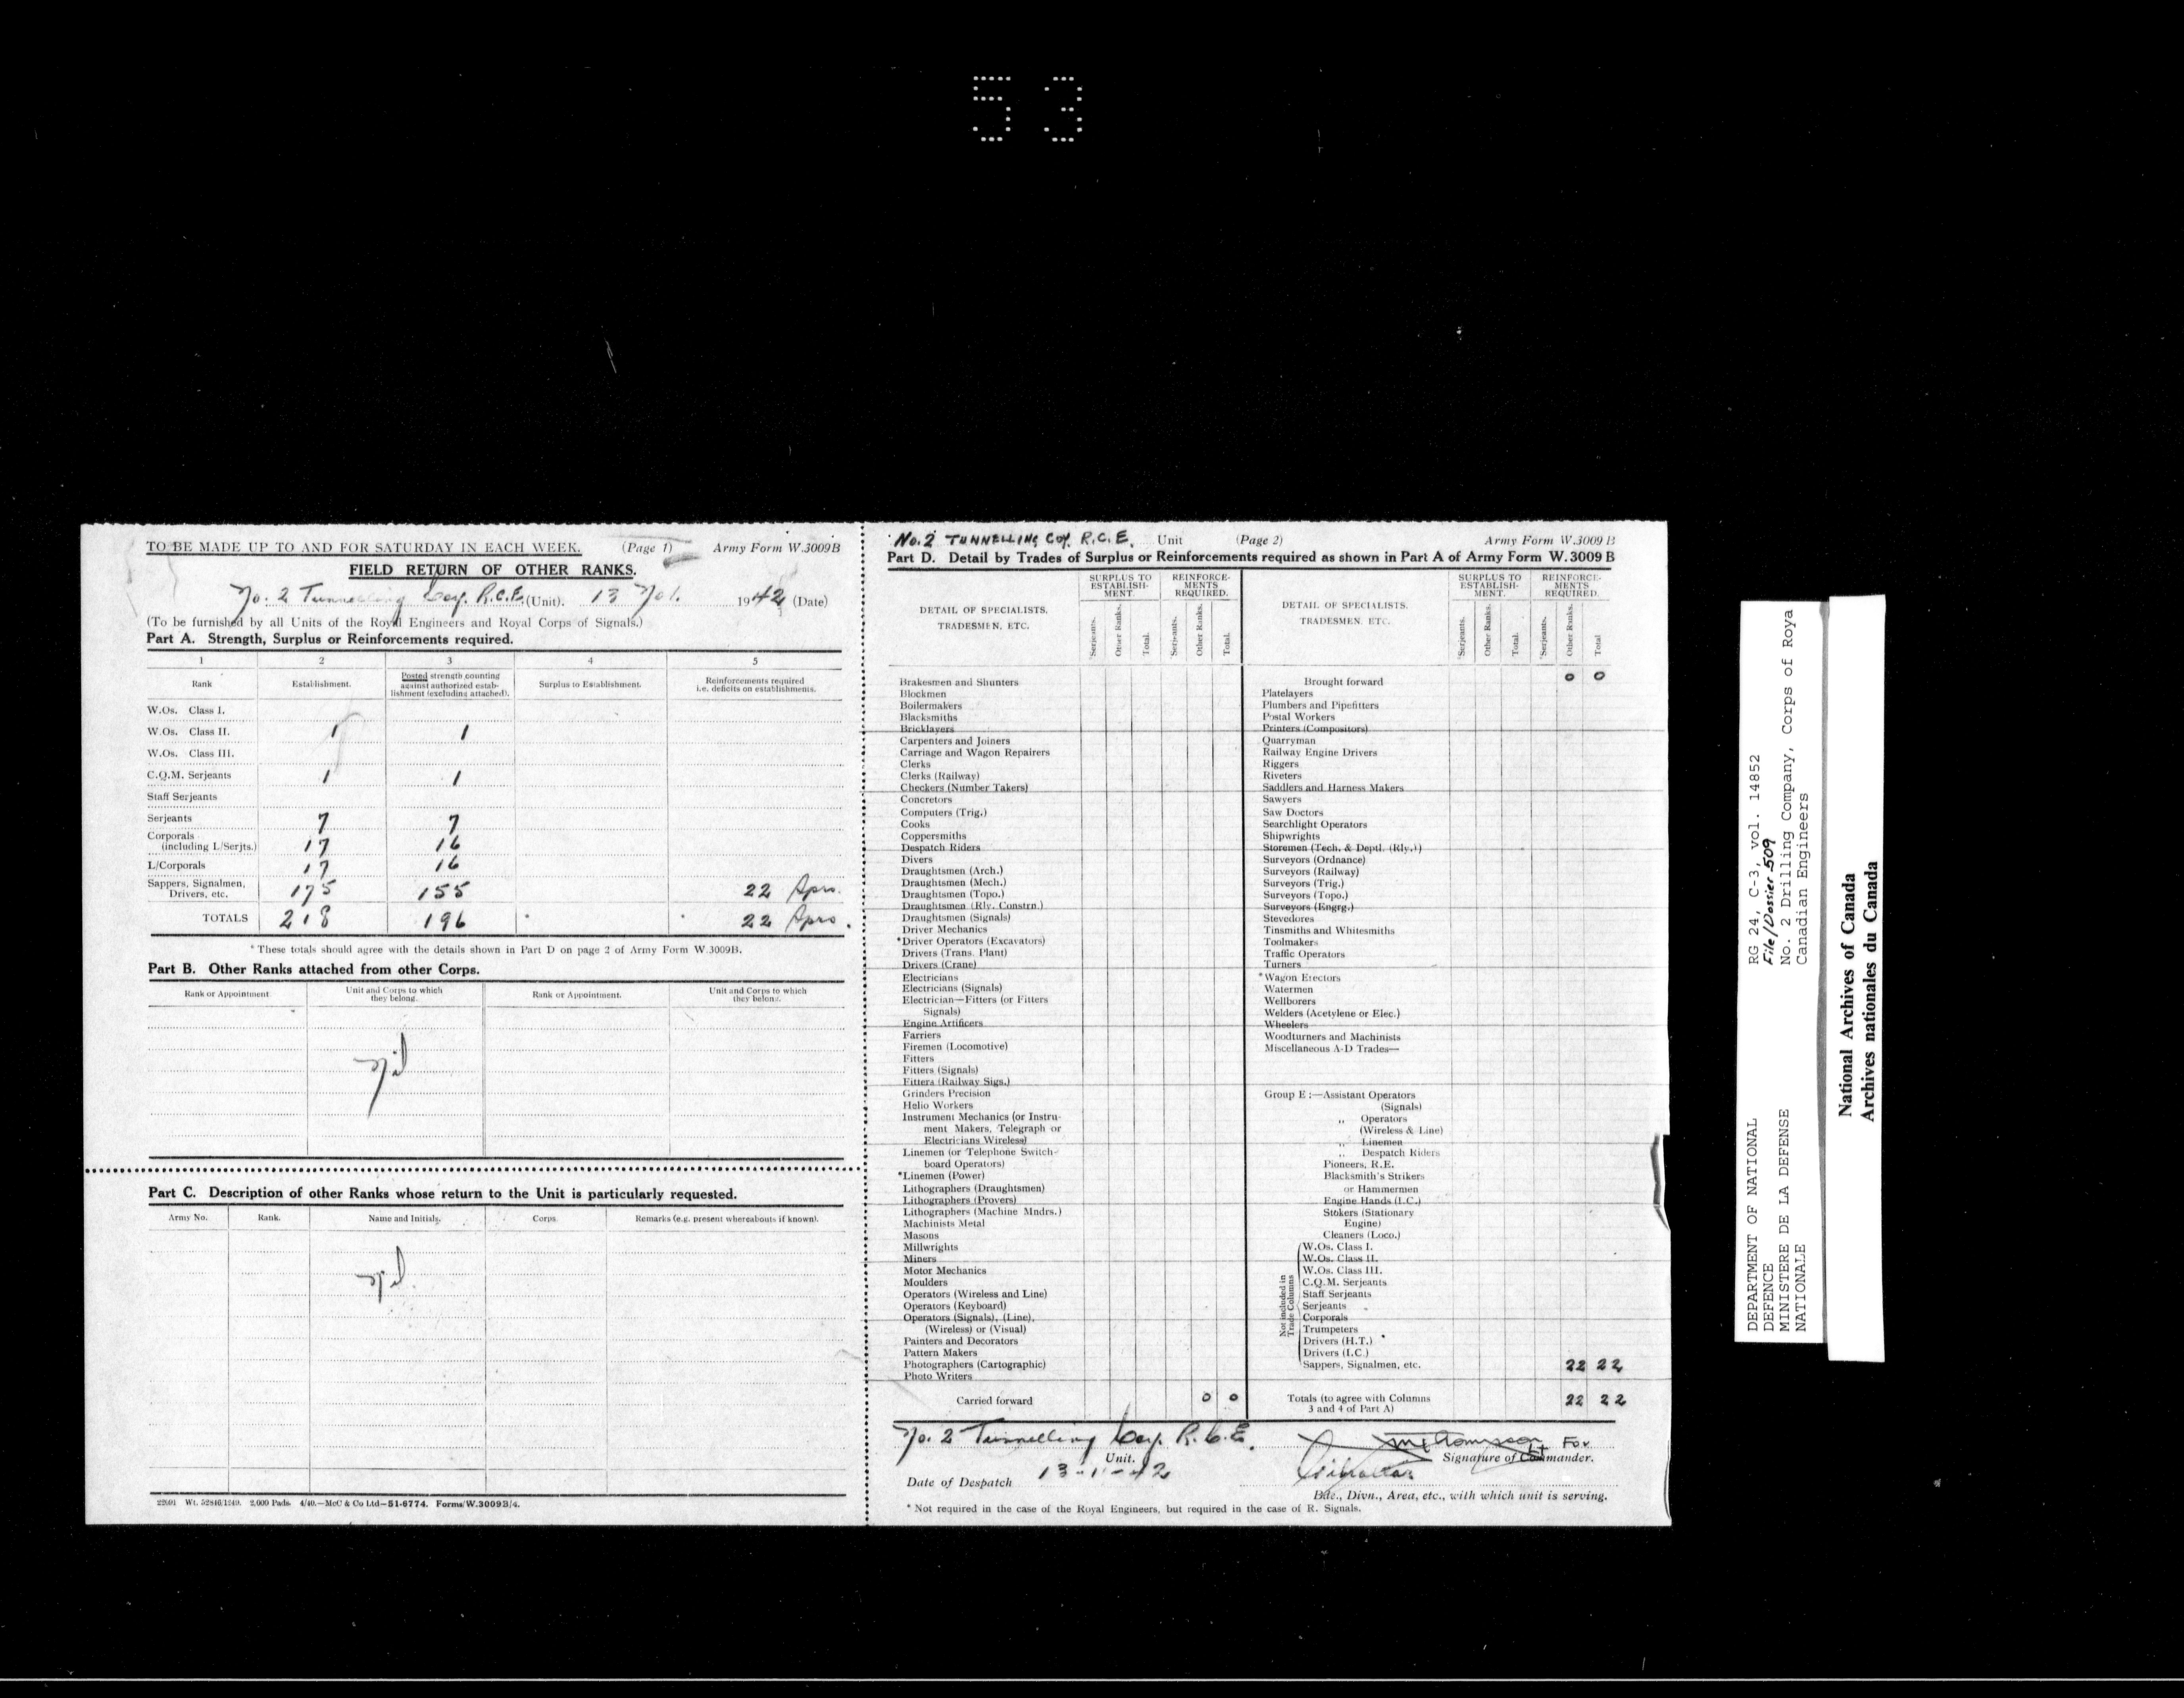 53
TO BE MADE UP TO AND FOR SATURDAY IN EACH WEEK. (Page 1) Army Form W.3009B
FIELD RETURN OF OTHER RANKS.
No. 2 Tunnelling Coy. R.C.E. (Unit). 13 Nov. 1942 (Date)
(To be furnished by all Units of the Royal Engineers and Royal Corps of Signals.)
Part A. Strength, Surplus or Reinforcements required.
1 2 3 4 5
Rank Establishment. Posted strength counting against authorized establishment (excluding attached). Surplus to Establishment. Reinforcements required i.e. deficits on establishments.
W.Os. Class I.
W.Os. Class II. 1 1
W.Os. Class III.
C.Q.M. Serjeants 1 1
Staff Serjeants
Serjeants 7 7
Corporals (including L/Serjts.) 17 16
L/Corporals 17 16
Sappers, Signalmen, Drivers, etc. 175 155 22 Sprs.
TOTALS 218 196 * * 22 Sprs.
* These totals should agree with the details shown in Part D on page 2 of Army Form W.3009B.
Part B. Other Ranks attached from other Corps.
Rank or Appointment Unit and Corps to which they belong. Rank or Appointment. Unit and Corps to which they belong.
Nil
Part C. Description of other Ranks whose return to the Unit is particularly requested.
Army No. Rank. Name and Initials. Corps. Remarks (e.g. present whereabouts if known).
Nil
22991 Wt. 52846/1249. 2,000 Pads. 4/40.—McC & Co Ltd—51-6774. Forms/W.3009B/4.
No. 2 TUNNELLING COY. R.C.E. Unit (Page 2) Army Form W.3009 B
Part D. Detail by Trades of Surplus or Reinforcements required as shown in Part A of Army Form W.3009 B
DETAIL OF SPECIALISTS, TRADESMEN, ETC.
SURPLUS TO ESTABLISHMENT. REINFORCEMENTS REQUIRED.
*Serjeants. Other Ranks. Total. Serjeants. Other Ranks. Total.
Brakesmen and Shunters
Blockmen
Boilermakers
Blacksmiths
Bricklayers
Carpenters and Joiners
Carriage and Wagon Repairers
Clerks
Clerks (Railway)
Checkers (Number Takers)
Concretors
Computers (Trig.)
Cooks
Coppersmiths
Despatch Riders
Divers
Draughtsmen (Arch.)
Draughtsmen (Mech.)
Draughtsmen (Topo.)
Draughtsmen (Rly. Constrn.)
Draughtsmen (Signals)
Driver Mechanics
*Driver Operators (Excavators)
Drivers (Trans. Plant)
Drivers (Crane)
Electricians
Electricians (Signals)
Electrician—Fitters (or Fitters
Signals)
Engine Artificers
Farriers
Firemen (Locomotive)
Fitters
Fitters (Signals)
Fitters (Railway Sigs.)
Grinders Precision
Helio Workers
Instrument Mechanics (or Instru-
ment Makers, Telegraph or
Electricians Wireless)
Linemen (or Telephone Switch-
board Operators)
*Linemen (Power)
Lithographers (Draughtsmen)
Lithographers (Provers)
Lithographers (Machine Mndrs.)
Machinists Metal
Masons
Millwrights
Miners
Motor Mechanics
Moulders
Operators (Wireless and Line)
Operators (Keyboard)
Operators (Signals), (Line),
(Wireless) or (Visual)
Painters and Decorators
Pattern Makers
Photographers (Cartographic)
Photo Writers
Carried forward 0 0
DETAIL OF SPECIALISTS, TRADESMEN, ETC.
SURPLUS TO ESTABLISHMENT. REINFORCEMENTS REQUIRED.
*Serjeants. Other Ranks. Total. *Serjeants. Other Ranks. Total
Brought forward 0 0
Platelayers
Plumbers and Pipefitters
Postal Workers
Printers (Compositors)
Quarryman
Railway Engine Drivers
Riggers
Riveters
Saddlers and Harness Makers
Sawyers
Saw Doctors
Searchlight Operators
Shipwrights
Storemen (Tech. & Deptl. (Rly.))
Surveyors (Ordnance)
Surveyors (Railway)
Surveyors (Trig.)
Surveyors (Topo.)
Surveyors (Engrg.)
Stevedores
Tinsmiths and Whitesmiths
Toolmakers
Traffic Operators
Turners
*Wagon Erectors
Watermen
Wellborers
Welders (Acetylene or Elec.)
Wheelers
Woodturners and Machinists
Miscellaneous A-D Trades—
Group E :—Assistant Operators
(Signals)
,, Operators
(Wireless & Line)
,, Linemen
,, Despatch Riders
Pioneers, R.E.
Blacksmith's Strikers
or Hammermen
Engine Hands (I.C.)
Stokers (Stationary
Engine)
Cleaners (Loco.)
Not included in Trade Columns
W.Os. Class I.
W.Os. Class II.
W.Os. Class III.
C.Q.M. Serjeants
Staff Serjeants
Serjeants
Corporals
Trumpeters
Drivers (H.T.)
Drivers (I.C.)
Sappers, Signalmen, etc. 22 22
Totals (to agree with Columns 3 and 4 of Part A) 22 22
No. 2 Tunnelling Coy. R.C.E. Thompson Lt For
Unit. Signature of Commander.
Date of Despatch 13-11-42 Gibraltar
Bde., Divn., Area, etc., with which unit is serving.
* Not required in the case of the Royal Engineers, but required in the case of R. Signals.
DEPARTMENT OF NATIONAL
DEFENCE
MINISTERE DE LA DEFENSE
NATIONALE
RG 24, C-3, vol. 14852
File/Dossier 509
No. 2 Drilling Company, Corps of Roya
Canadian Engineers
National Archives of Canada
Archives nationales du Canada